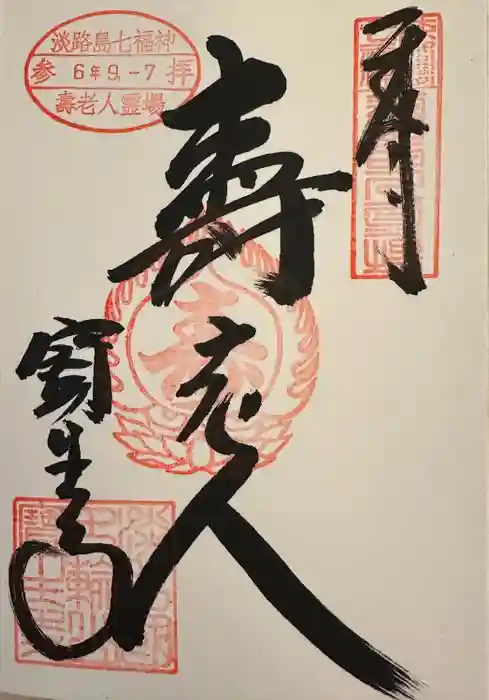 淡路島七福神
参 6年9.-7 拝
壽老人霊場
奉拝
壽老人
寳生寺